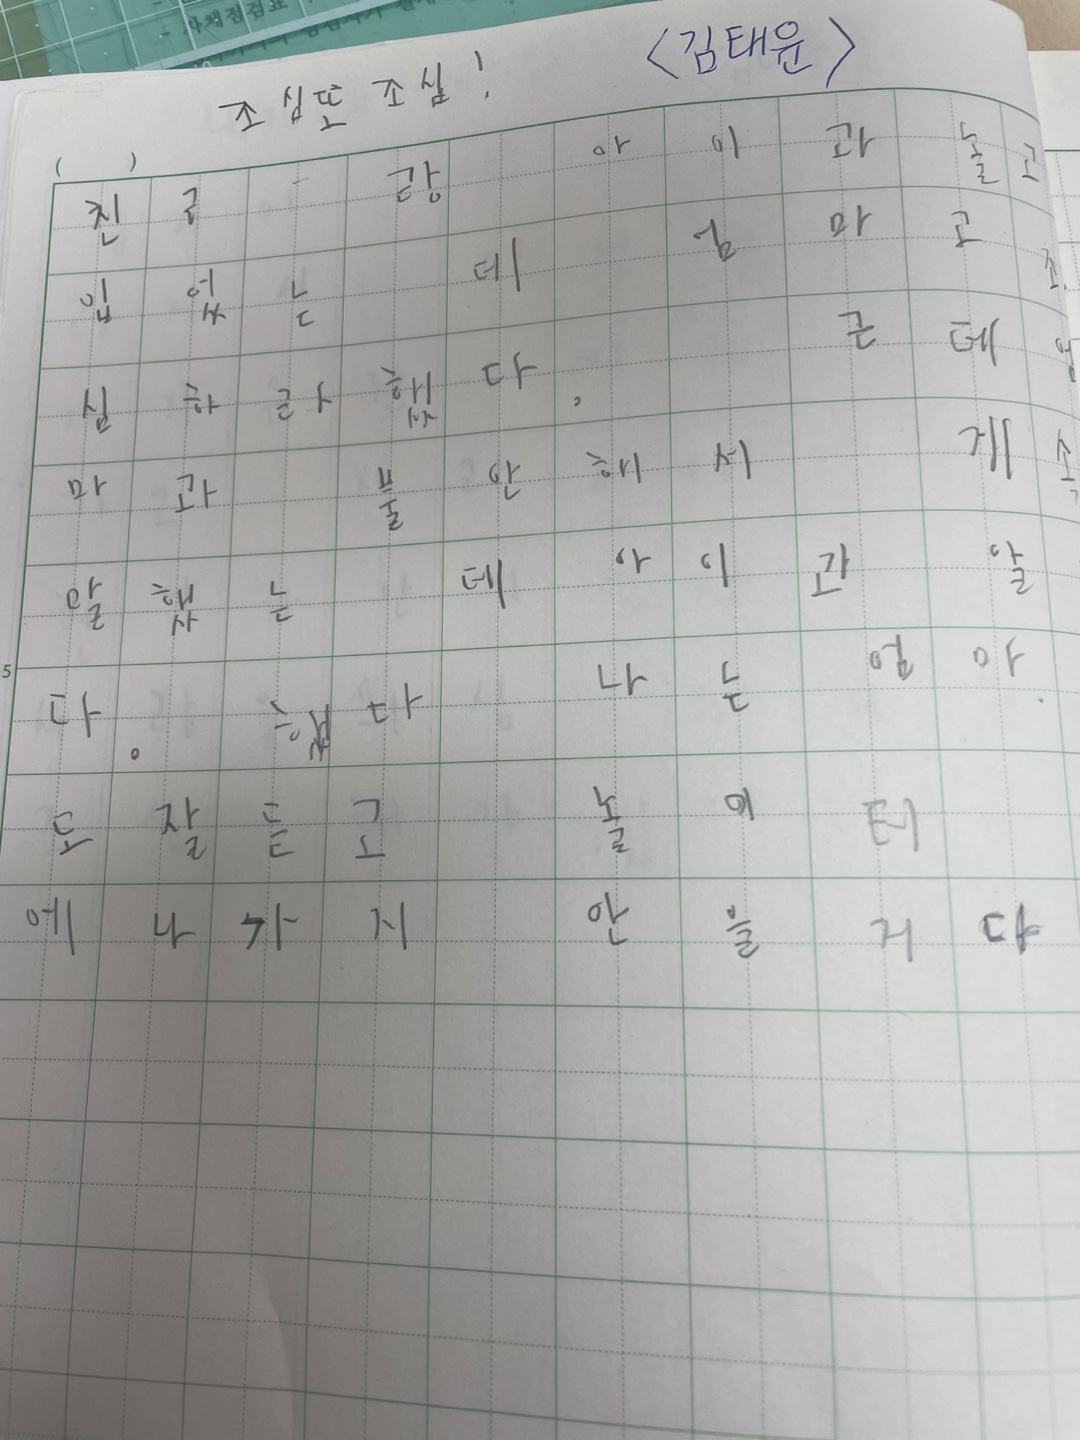 자체점검표
조심또 조심!
<김태윤>
( )
친 글 강 아 이 과 놀 고
입 었 는 데 엄 마 고
심 하 라 했 다. 근 데
마 과 불 안 해 서 계 속
말 했 는 데 아 이 과 알
다. 했 다 나 는 엄 마
도 잘 듣 고 놀 이 터
에 나 가 지 안 을 거 다
5